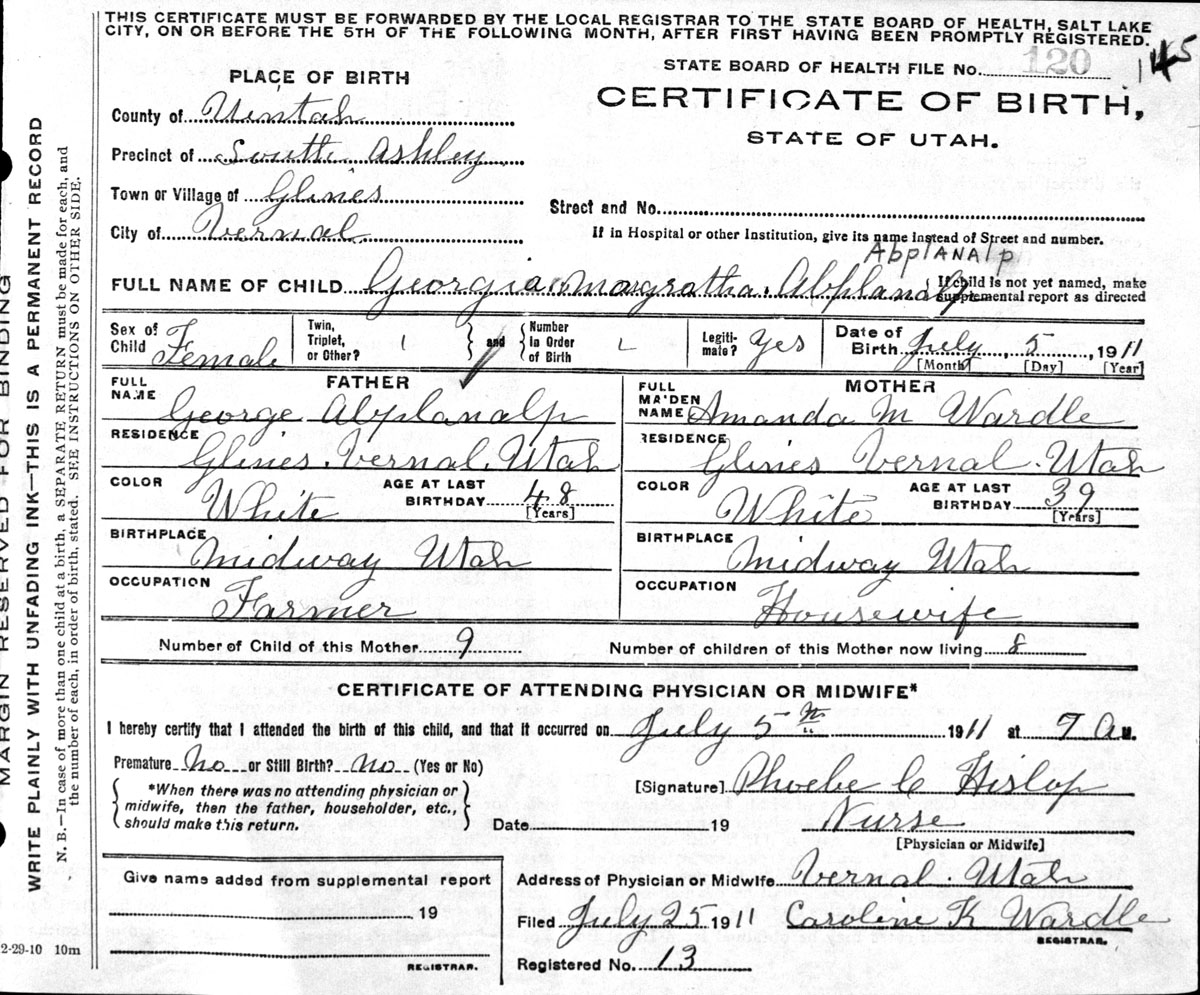 THIS CERTIFICATE MUST BE FORWARDED BY THE LOCAL REGISTRAR TO THE STATE BOARD OF HEALTH, SALT LAKE
CITY, ON OR BEFORE THE 5TH OF THE FOLLOWING MONTH, AFTER FIRST HAVING BEEN PROMPTLY REGISTERED.
STATE BOARD OF HEALTH FILE No. 120 145
PLACE OF BIRTH
CERTIFICATE OF BIRTH,
STATE OF UTAH.
County of Uintah
Precinct of South Ashley
Town or Village of Glines
City of Vernal
Street and No.
If in Hospital or other Institution, give its name instead of Street and number.
AbplANAlp
FULL NAME OF CHILD Georgia Margratha Abplanalp
If child is not yet named, make
supplemental report as directed
Sex of Child Female
Twin, Triplet, or Other? 1 and Number in Order of Birth
Legiti-mate? Yes
Date of Birth July 5, 1911
[Month] [Day] [Year]
FATHER
FULL NAME George Abplanalp
RESIDENCE Glines Vernal Utah
COLOR White AGE AT LAST BIRTHDAY 48
[Years]
BIRTHPLACE Midway Utah
OCCUPATION Farmer
MOTHER
FULL MAIDEN NAME Amanda M Wardle
RESIDENCE Glines Vernal Utah
COLOR White AGE AT LAST BIRTHDAY 39
[Years]
BIRTHPLACE Midway Utah
OCCUPATION Housewife
Number of Child of this Mother 9 Number of children of this Mother now living 8
CERTIFICATE OF ATTENDING PHYSICIAN OR MIDWIFE*
I hereby certify that I attended the birth of this child, and that it occurred on July 5th 1911 at 7 A M.
Premature No or Still Birth? No (Yes or No)
*When there was no attending physician or
midwife, then the father, householder, etc.,
should make this return.
[Signature] Phoebe C Hislop
Date 19 Nurse
[Physician or Midwife]
Give name added from supplemental report
19
REGISTRAR.
Address of Physician or Midwife Vernal Utah
Filed July 25 1911 Caroline K Wardle
REGISTRAR.
Registered No. 13
2-29-10 10m
MARGIN RESERVED FOR BINDING
WRITE PLAINLY WITH UNFADING INK—THIS IS A PERMANENT RECORD
N. B.—In case of more than one child at a birth, a SEPARATE RETURN must be made for each, and
the number of each, in order of birth, stated. SEE INSTRUCTIONS ON OTHER SIDE.